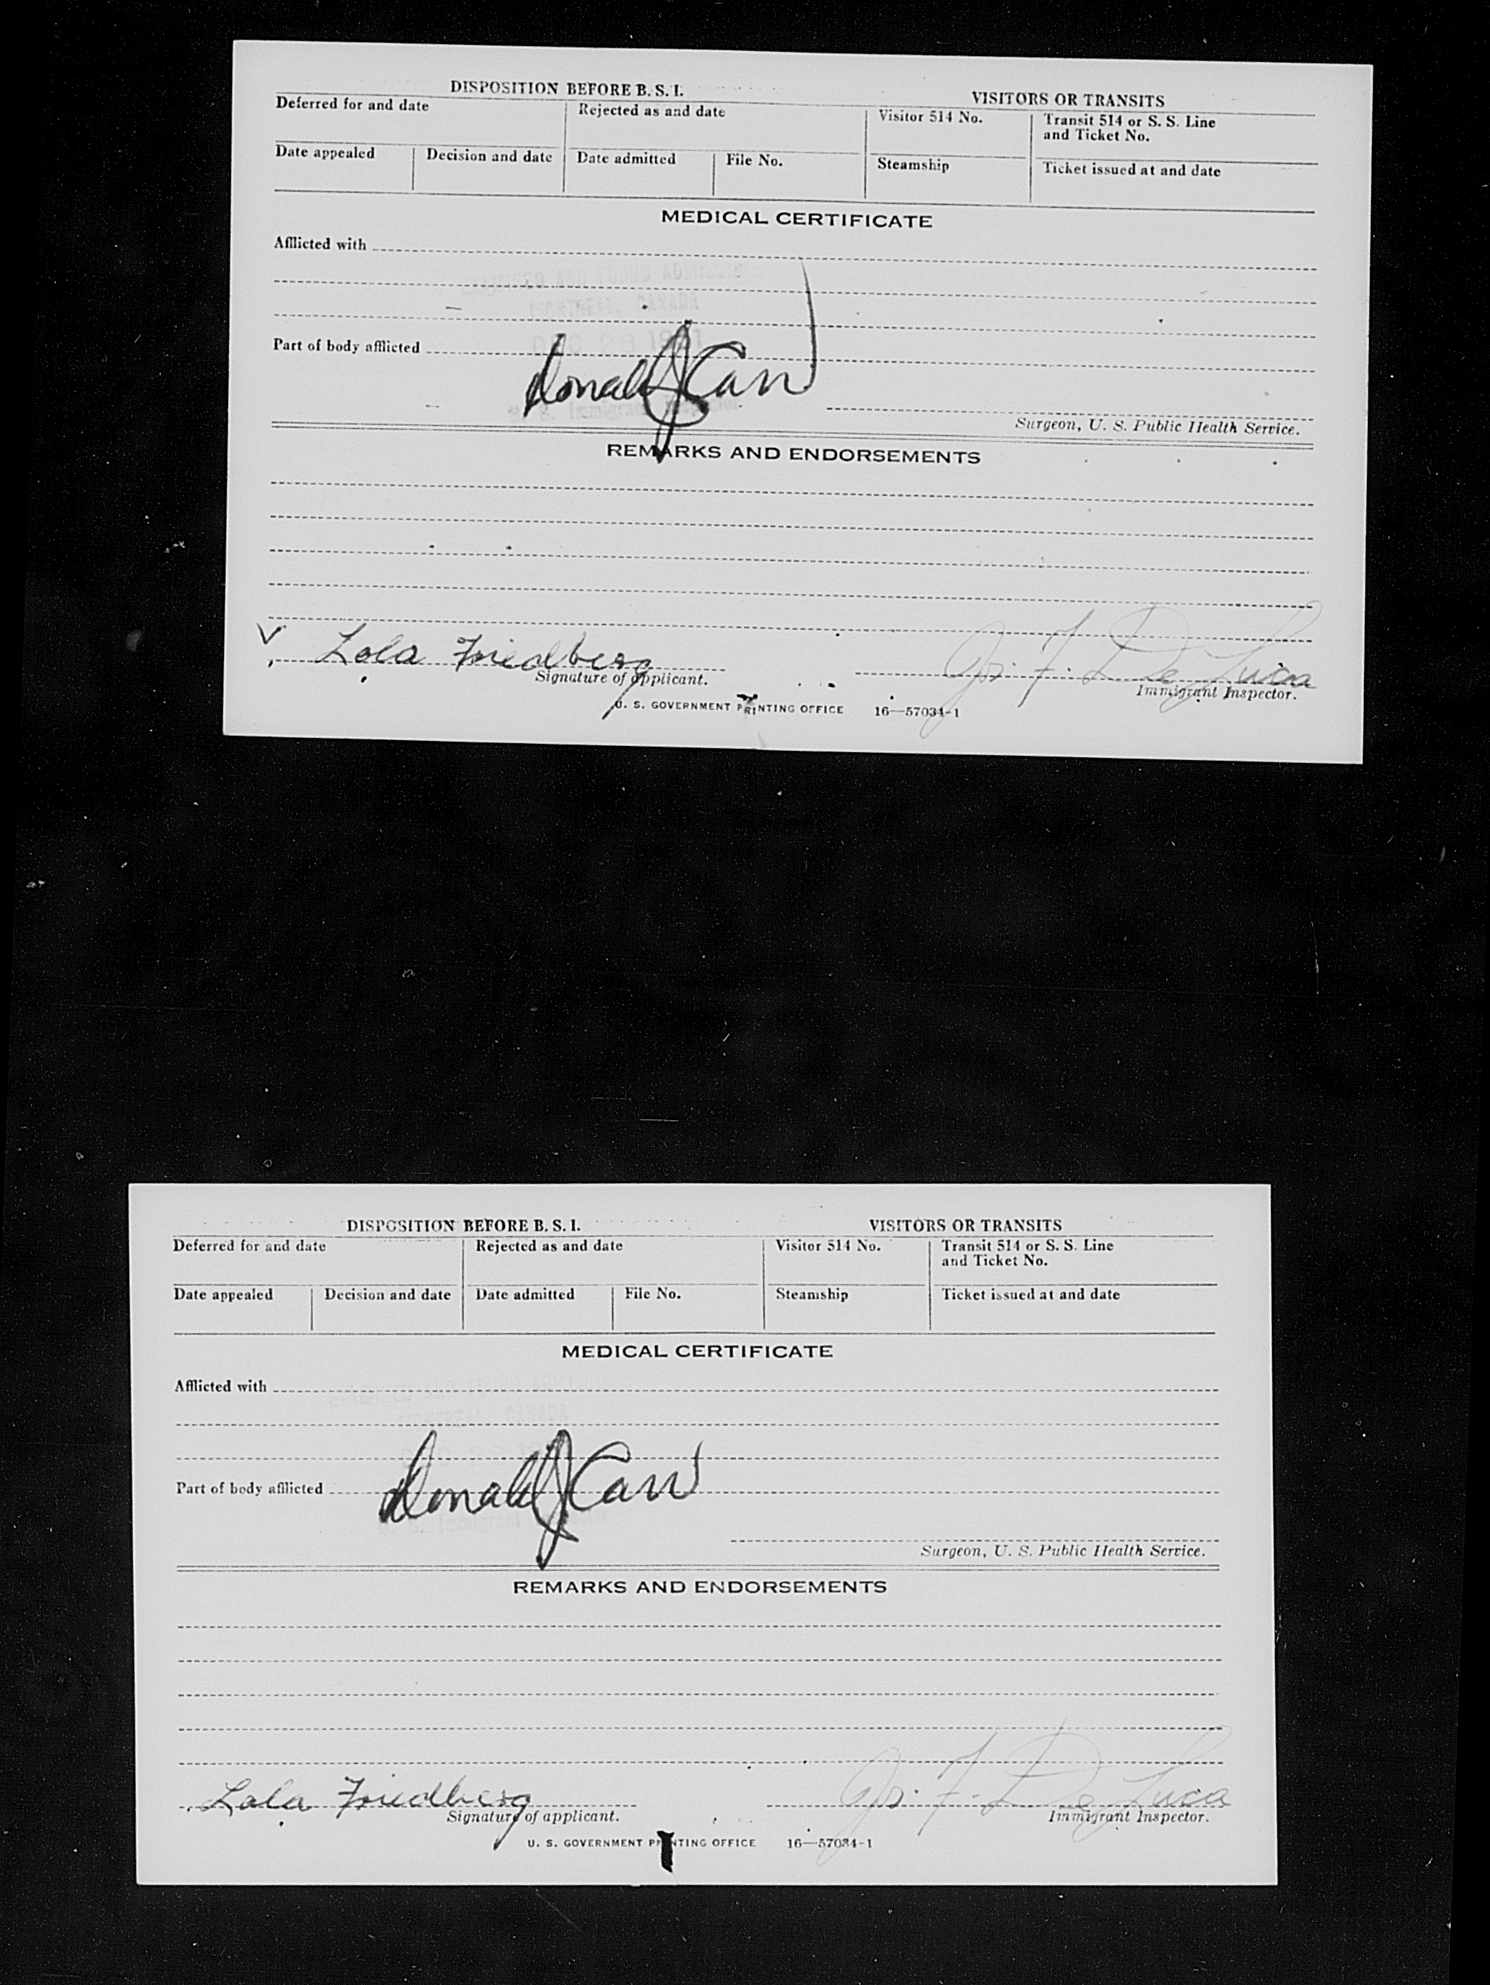 DISPOSITION BEFORE B. S. I.
VISITORS OR TRANSITS
Deferred for and date
Rejected as and date
Visitor 514 No.
Transit 514 or S. S. Line
and Ticket No.
Date appealed
Decision and date
Date admitted
File No.
Steamship
Ticket issued at and date
MEDICAL CERTIFICATE
Afflicted with
Part of body afflicted
Donald J Carr
Surgeon, U. S. Public Health Service.
REMARKS AND ENDORSEMENTS
Lola Friedberg
Jos. F. De Luca
Signature of applicant.
Immigrant Inspector.
U. S. GOVERNMENT PRINTING OFFICE 16—57034-1
DISPOSITION BEFORE B. S. I.
VISITORS OR TRANSITS
Deferred for and date
Rejected as and date
Visitor 514 No.
Transit 514 or S. S. Line
and Ticket No.
Date appealed
Decision and date
Date admitted
File No.
Steamship
Ticket issued at and date
MEDICAL CERTIFICATE
Afflicted with
Part of body afflicted
Donald J Carr
Surgeon, U. S. Public Health Service.
REMARKS AND ENDORSEMENTS
Lola Friedberg
Jos. F. De Luca
Signature of applicant.
Immigrant Inspector.
U. S. GOVERNMENT PRINTING OFFICE 16—57034-1